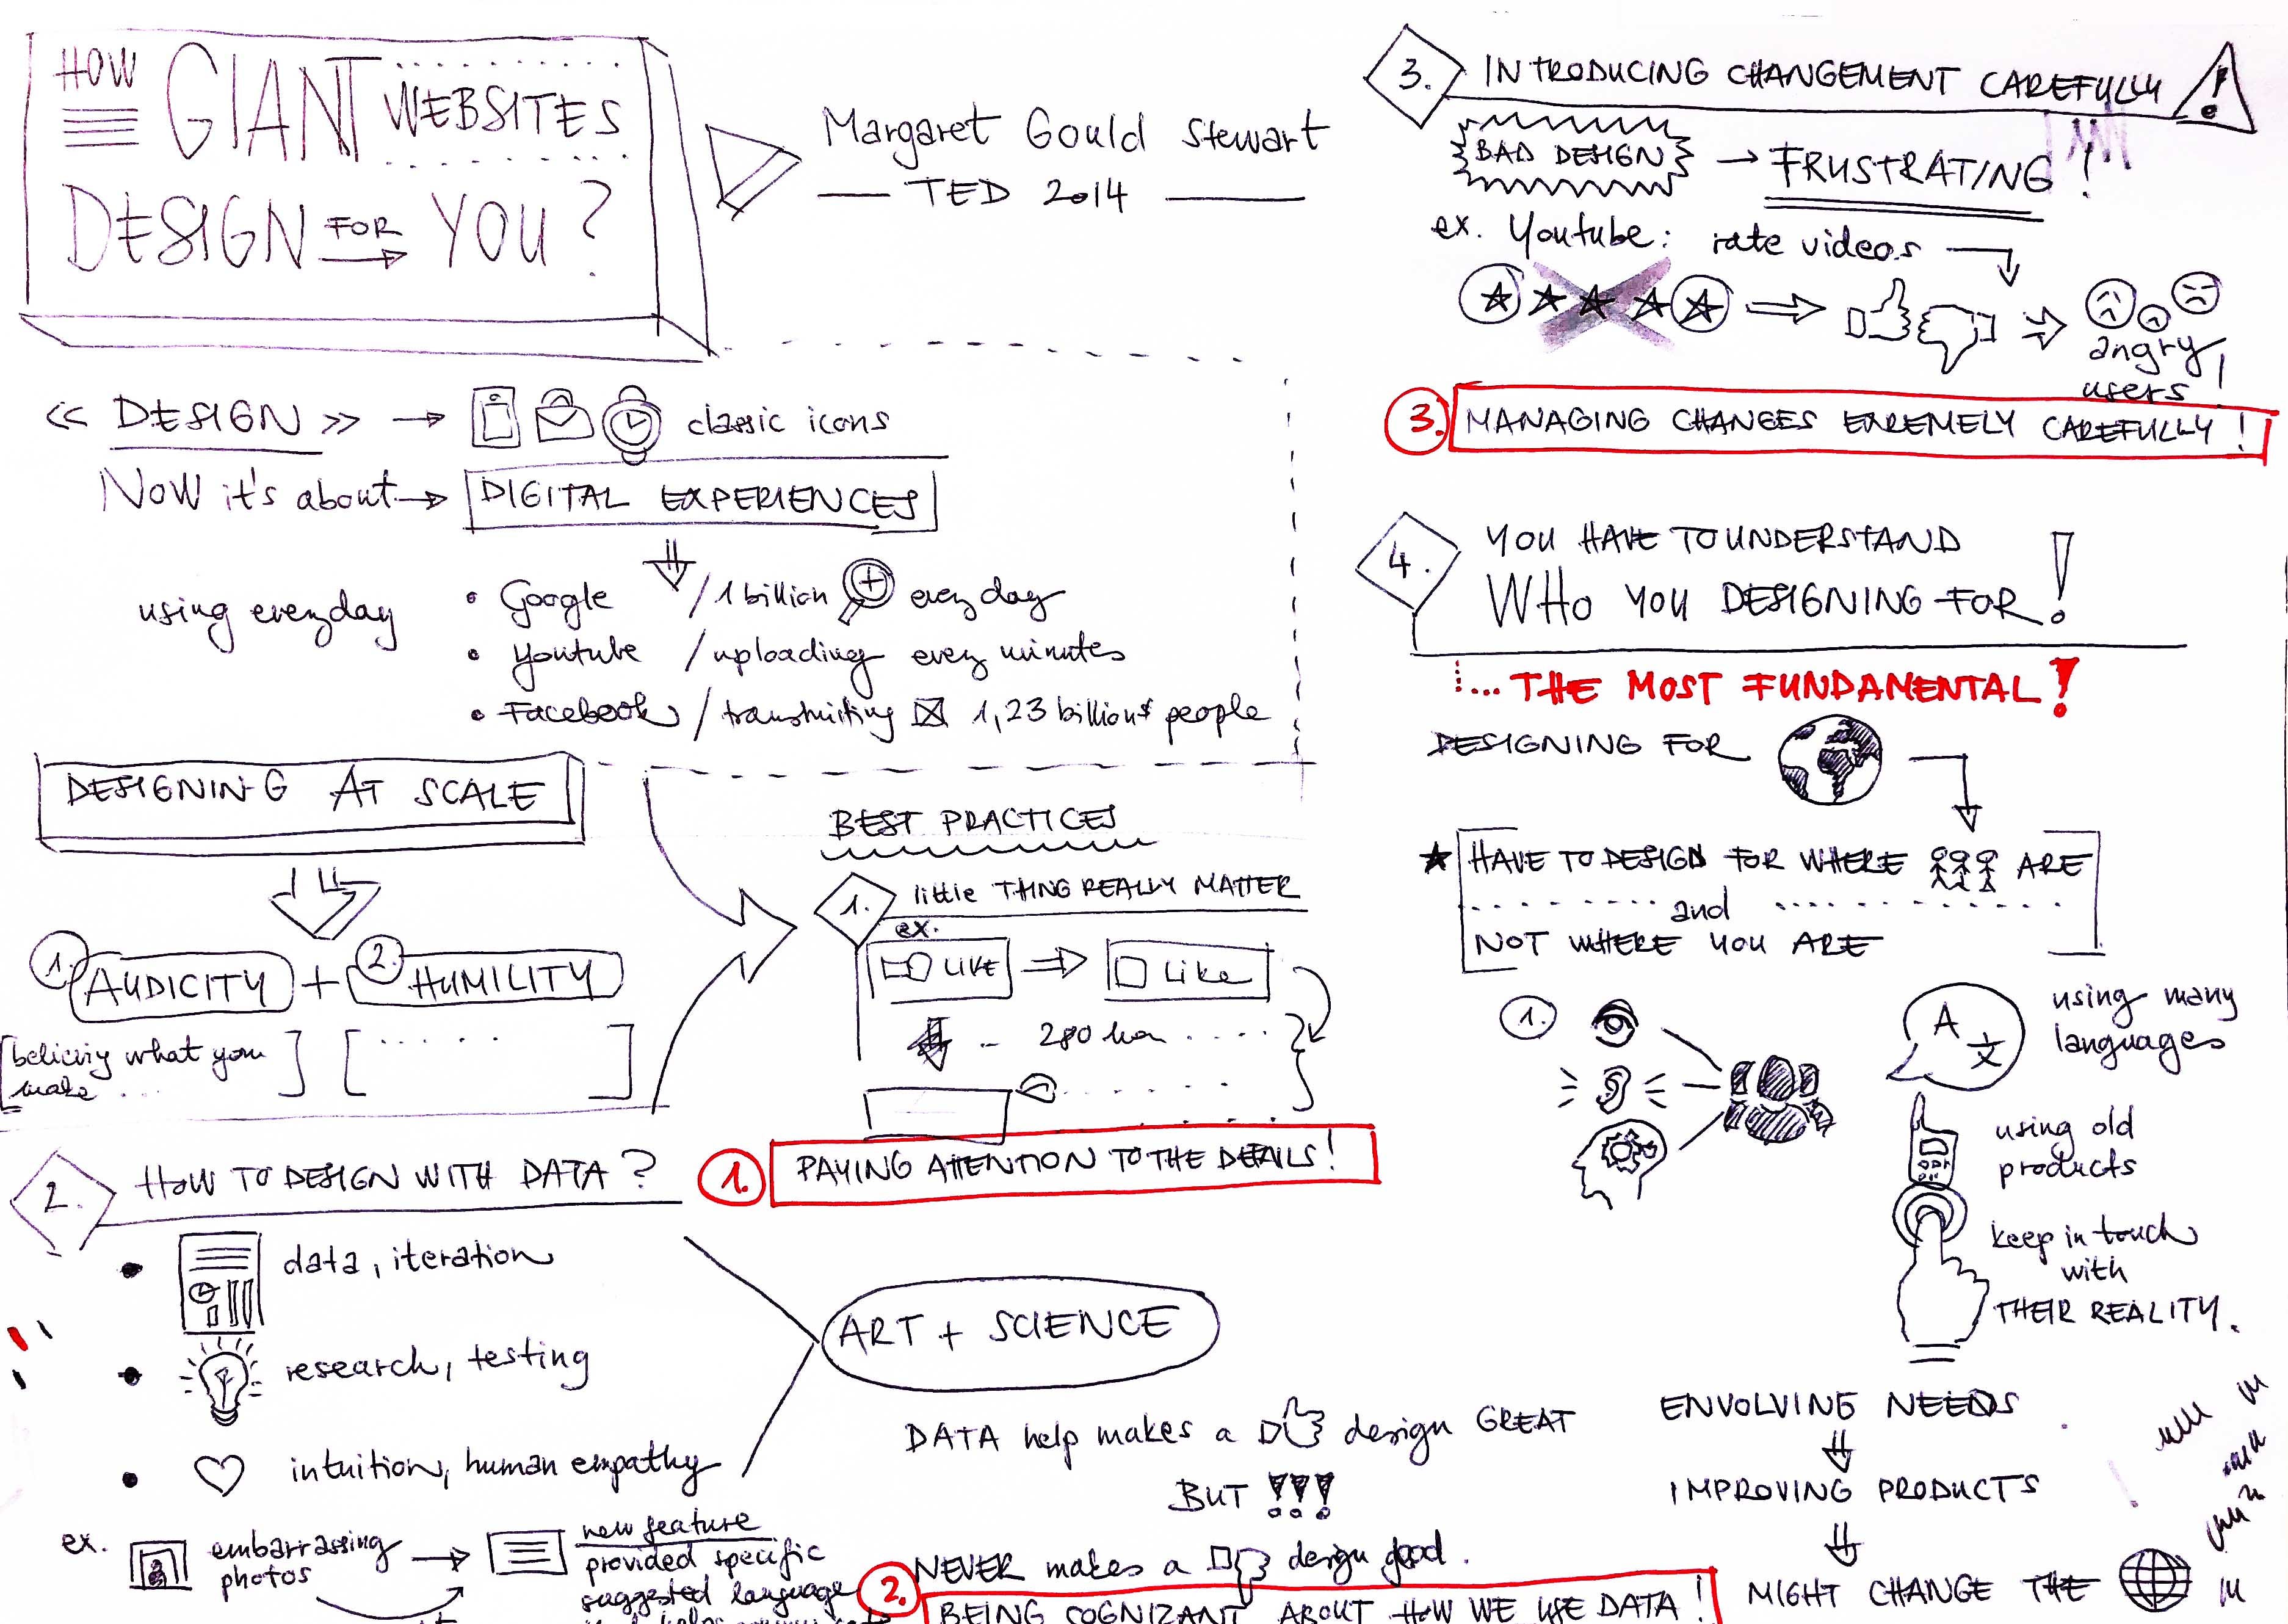 HOW GIANT WEBSITES
DESIGN FOR YOU?
Margaret Gould Stewart
TED 2014
<< DESIGN >> classic icons
Now it's about DIGITAL EXPERIENCES
using everyday
• Google / 1 billion everyday
• Youtube / uploading every minutes
• Facebook / transmitting 1,23 billions people
DESIGNING AT SCALE
1. AUDICITY + 2. HUMILITY
[believing what you
make ...] [.....]
BEST PRACTICES
1. little THING REALLY MATTER
ex.
LIKE Like
280
1. PAYING ATTENTION TO THE DETAILS!
2. HOW TO DESIGN WITH DATA?
• data, iteration
• research, testing
• intuition, human empathy
ART + SCIENCE
ex. embarrassing
photos
new feature
provided specific
suggested language
DATA help makes a design GREAT
BUT !!!
NEVER makes a design good.
2. BEING COGNIZANT ABOUT HOW WE USE DATA!
3. INTRODUCING CHANGEMENT CAREFULLY !
BAD DESIGN → FRUSTRATING!
ex. Youtube: rate videos
angry
users!
3. MANAGING CHANGES EXREMELY CAREFULLY!
4. YOU HAVE TO UNDERSTAND
WHO YOU DESIGNING FOR!
... THE MOST FUNDAMENTAL!
DESIGNING FOR
HAVE TO DESIGN FOR WHERE ARE
and
NOT WHERE YOU ARE
1.
A 文
using many
languages
using old
products
keep in touch
with
THEIR REALITY.
ENVOLVING NEEDS
IMPROVING PRODUCTS
MIGHT CHANGE THE